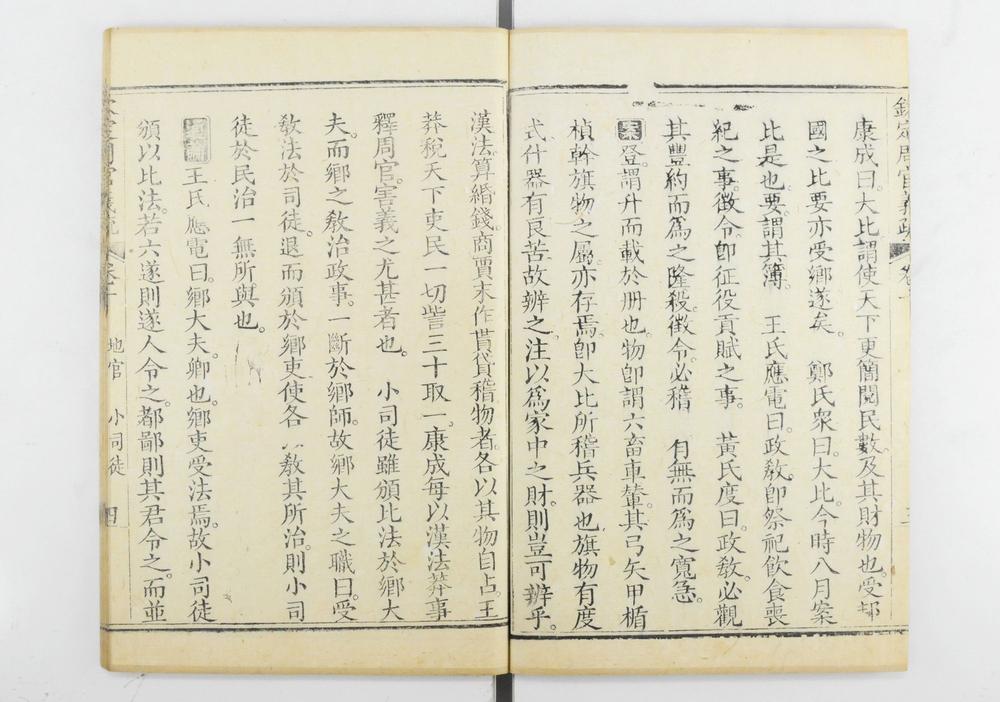 欽定周官義疏 卷十
康成曰。大比謂使天下更簡閱民數。及其財物也。受邦
國之比要亦受鄉遂矣。 鄭氏衆曰。大比。今時八月案
比是也。要謂其簿。 王氏應電曰。政敎。卽祭祀飲食喪
紀之事。徵令卽征役貢賦之事。 黃氏度曰。政敎。必觀
其豐約而爲之隆殺。徵令。必稽 有無而爲之寬急。
案登。謂升而載於册也。物卽謂六畜車輦。其弓矢甲楯
楨幹旗物之屬。亦存焉。卽大比所稽兵器也。旗物有度
式。什器有良苦。故辨之。注以爲家中之財。則豈可辨乎。
漢法。算緡錢。商賈末作貰貸稽物者。各以其物自占。王
莽稅天下吏民一切訾三十取一。康成每以漢法莽事
釋周官。害義之尤甚者也。 小司徒雖頒比法於鄉大
夫。而鄉之敎治政事。一斷於鄉師。故鄉大夫之職曰。受
敎法於司徒。退而頒於鄉吏。使各 敎其所治。則小司
徒於民治一無所與也。
總論王氏應電曰。鄉大夫。卿也。鄉吏受法焉。故小司徒
頒以比法。若六遂則遂人令之。都鄙則其君令之。而並
地官 小司徒 四